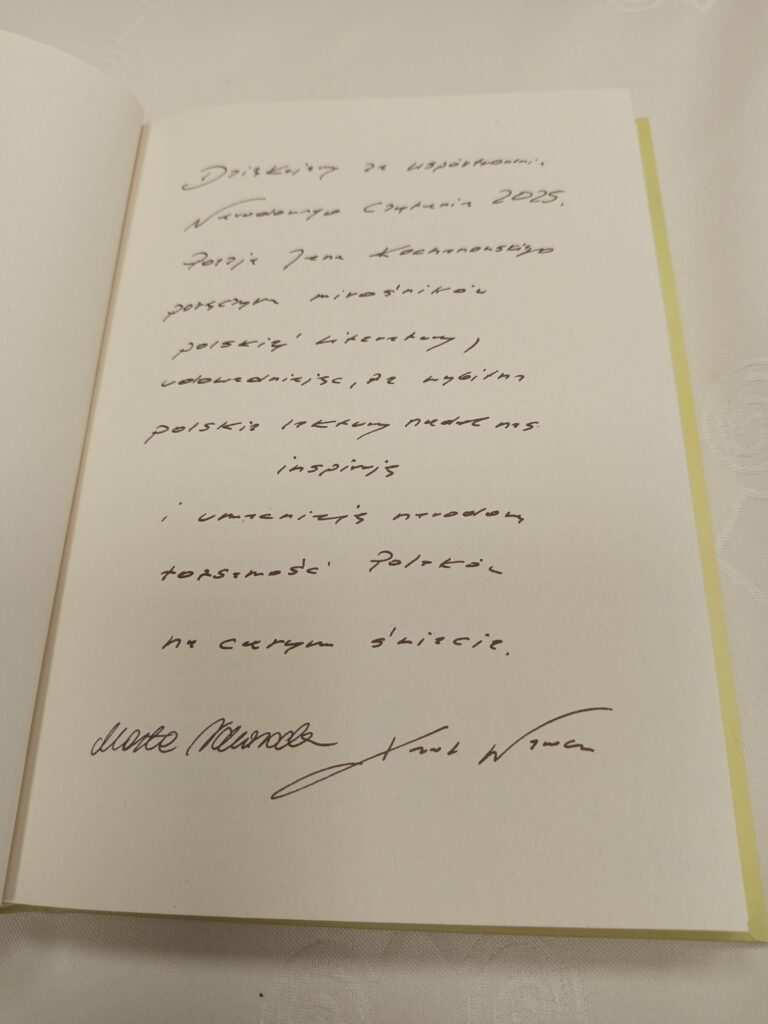 Dziękujemy za współtworzeni.
Narodowego Czytania 2025.
Poezja Jana Kochanowskiego
połączyła miłośników
polskiej literatury,
udowadniając, że wybitne
polskie lektury nadal nas
inspirują
i umacniają narodową
tożsamość Polaków
na całym świecie.
Marta Nawrocka Karol Nawrocki